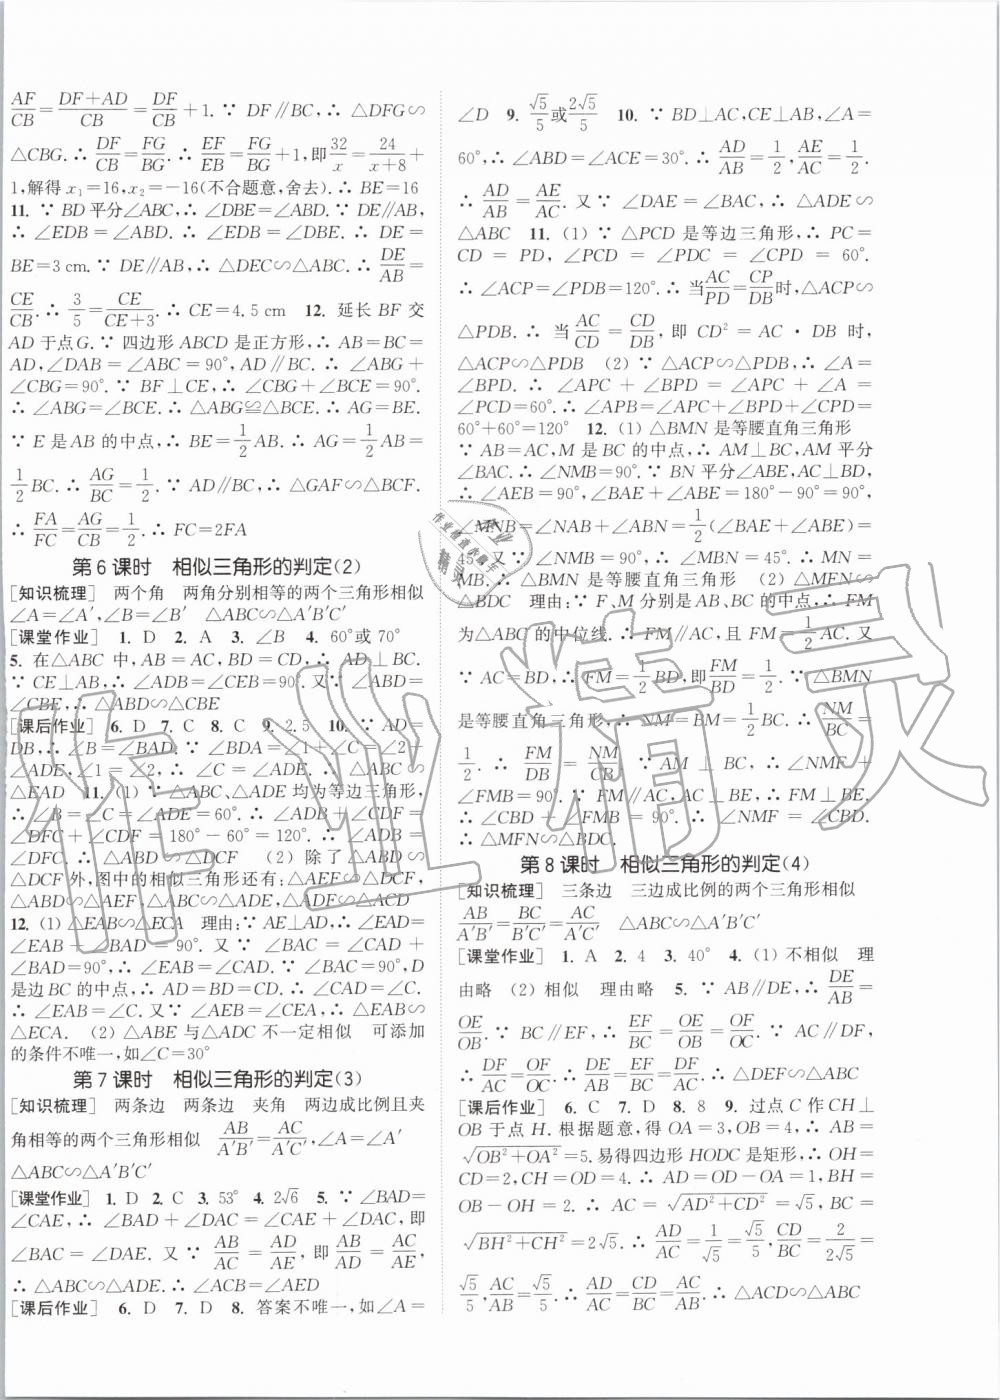 AF/CB=(DF+AD)/CB=DF/CB+1.∵ DF∥BC,∴ △DFG∽
△CBG.∴ DF/CB=FG/BG.∴ EF/EB=FG/BG+1,即32/x=24/(x+8)+
1,解得 x₁=16,x₂=-16(不合题意,舍去).∴ BE=16
11. ∵ BD 平分∠ABC,∴ ∠DBE=∠ABD.∵ DE∥AB,
∴ ∠EDB=∠ABD.∴ ∠EDB=∠DBE.∴ DE=
BE=3 cm.∵ DE∥AB,∴ △DEC∽△ABC.∴ DE/AB=
CE/CB.∴ 3/5=CE/(CE+3).∴ CE=4.5 cm 12. 延长 BF 交
AD 于点G.∵ 四边形 ABCD 是正方形,∴ AB=BC=
AD,∠DAB=∠ABC=90°,AD∥BC.∴ ∠ABG+
∠CBG=90°.∵ BF⊥CE,∴ ∠CBG+∠BCE=90°.
∴ ∠ABG=∠BCE.∴ △ABG≌△BCE.∴ AG=BE.
∵ E 是 AB 的中点,∴ BE=1/2AB.∴ AG=1/2AB=
1/2BC.∴ AG/BC=1/2.∵ AD∥BC,∴ △GAF∽△BCF.
∴ FA/FC=AG/CB=1/2.∴ FC=2FA
第 6 课时 相似三角形的判定(2)
[知识梳理] 两个角 两角分别相等的两个三角形相似
∠A=∠A′,∠B=∠B′ △ABC∽△A′B′C′
[课堂作业] 1. D 2. A 3. ∠B 4. 60°或 70°
5. 在△ABC 中,AB=AC,BD=CD,∴ AD⊥BC.
∵ CE⊥AB,∴ ∠ADB=∠CEB=90°.又∵ ∠ABD=
∠CBE,∴ △ABD∽△CBE
[课后作业] 6. D 7. C 8. C 9. 2.5 10. ∵ AD=
DB,∴ ∠B=∠BAD.∵ ∠BDA=∠1+∠C=∠2+
∠ADE,∠1=∠2,∴ ∠C=∠ADE.∴ △ABC∽
△EAD 11. (1) ∵ △ABC、△ADE 均为等边三角形,
∴ ∠B=∠C=∠ADE=60°.∴ ∠ADB+∠CDF=
∠DFC+∠CDF=180°-60°=120°.∴ ∠ADB=
∠DFC.∴ △ABD∽△DCF (2) 除了△ABD∽
△DCF 外,图中的相似三角形还有:△AEF∽△DCF,
△ABD∽△AEF,△ABC∽△ADE,△ADF∽△ACD
12. (1) △EAB∽△ECA 理由:∵ AE⊥AD,∴ ∠EAD=
∠EAB+∠BAD=90°.又∵ ∠BAC=∠CAD+
∠BAD=90°,∴ ∠EAB=∠CAD.∵ ∠BAC=90°,D
是边 BC 的中点,∴ AD=BD=CD.∴ ∠CAD=∠C.
∴ ∠EAB=∠C.又∵ ∠AEB=∠CEA,∴ △EAB∽
△ECA. (2) △ABE 与△ADC 不一定相似 可添加
的条件不唯一,如∠C=30°
第 7 课时 相似三角形的判定(3)
[知识梳理] 两条边 两条边 夹角 两边成比例且夹
角相等的两个三角形相似 AB/A′B′=AC/A′C′,∠A=∠A′
△ABC∽△A′B′C′
[课堂作业] 1. D 2. C 3. 53° 4. 2√6 5. ∵ ∠BAD=
∠CAE,∴ ∠BAD+∠DAC=∠CAE+∠DAC,即
∠BAC=∠DAE.又∵ AB/AC=AD/AE,即AB/AD=AC/AE,
∴ △ABC∽△ADE.∴ ∠ACB=∠AED
[课后作业] 6. D 7. D 8. 答案不唯一,如∠A=
∠D 9. √5/5或2√5/5 10. ∵ BD⊥AC,CE⊥AB,∠A=
60°,∴ ∠ABD=∠ACE=30°.∴ AD/AB=1/2,AE/AC=1/2.
∴ AD/AB=AE/AC.又∵ ∠DAE=∠BAC,∴ △ADE∽
△ABC 11. (1) ∵ △PCD 是等边三角形,∴ PC=
CD=PD,∠PCD=∠PDC=∠CPD=60°.
∴ ∠ACP=∠PDB=120°.∴ 当AC/PD=CP/DB时,△ACP∽
△PDB.∴ 当AC/CD=CD/DB,即 CD²=AC·DB 时,
△ACP∽△PDB (2) ∵ △ACP∽△PDB,∴ ∠A=
∠BPD.∴ ∠APC+∠BPD=∠APC+∠A=
∠PCD=60°.∴ ∠APB=∠APC+∠BPD+∠CPD=
60°+60°=120° 12. (1) △BMN 是等腰直角三角形
∵ AB=AC,M 是 BC 的中点,∴ AM⊥BC,AM 平分
∠BAC.∴ ∠NMB=90°.∵ BN 平分∠ABE,AC⊥BD,
∴ ∠AEB=90°,∠BAE+∠ABE=180°-90°=90°.
∴ ∠MNB=∠NAB+∠ABN=1/2(∠BAE+∠ABE)=
45°.又∵ ∠NMB=90°,∴ ∠NBM=45°.∴ MN=
MB.∴ △BMN 是等腰直角三角形 (2) △MFN∽
△BDC 理由:∵ F、M 分别是 AB、BC 的中点,∴ FM
为△ABC 的中位线.∴ FM∥AC,且 FM=1/2AC.又
∵ AC=BD,∴ FM=1/2BD,即FM/BD=1/2.∵ △BMN
是等腰直角三角形,∴ NM=BM=1/2BC.∴ NM/BC=
1/2.∴ FM/DB=NM/CB.∵ AM⊥BC,∴ ∠NMF+
∠FMB=90°.∵ FM∥AC,AC⊥BE,∴ FM⊥BE.
∴ ∠CBD+∠FMB=90°.∴ ∠NMF=∠CBD.
∴ △MFN∽△BDC.
第 8 课时 相似三角形的判定(4)
[知识梳理] 三条边 三边成比例的两个三角形相似
AB/A′B′=BC/B′C′=AC/A′C′ △ABC∽△A′B′C′
[课堂作业] 1. A 2. 4 3. 40° 4. (1) 不相似 理
由略 (2) 相似 理由略 5. ∵ AB∥DE,∴ DE/AB=
OE/OB.∵ BC∥EF,∴ EF/BC=OE/OB=OF/OC.∵ AC∥DF,
∴ DF/AC=OF/OC.∴ DE/AB=EF/BC=DF/AC.∴ △DEF∽△ABC
[课后作业] 6. C 7. D 8. 8 9. 过点 C 作 CH⊥
OB 于点 H.根据题意,得 OA=3,OB=4,∴ AB=
√(OB²+OA²)=5.易得四边形 HODC 是矩形,∴ OH=
CD=2,CH=OD=4.∴ AD=OD-OA=1,BH=
OB-OH=2.∴ AC=√(AD²+CD²)=√5,BC=
√(BH²+CH²)=2√5.∴ AD/AC=1/√5=√5/5,CD/BC=2/(2√5)=
√5/5,AC/AB=√5/5.∴ AD/AC=CD/BC=AC/AB.∴ △ACD∽△ABC
作业精灵